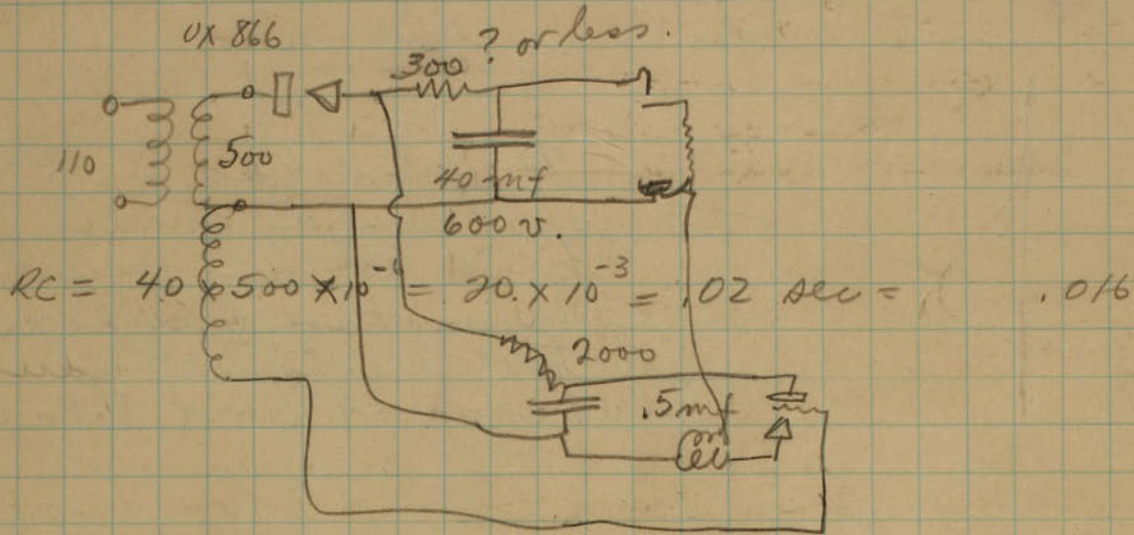 UX 866
300 ? or less.
110
500
40 mf
600 v.
RC = 40 × 500 × 10⁻⁶ = 20. × 10⁻³ = .02 sec = .016
2000
.5 mf